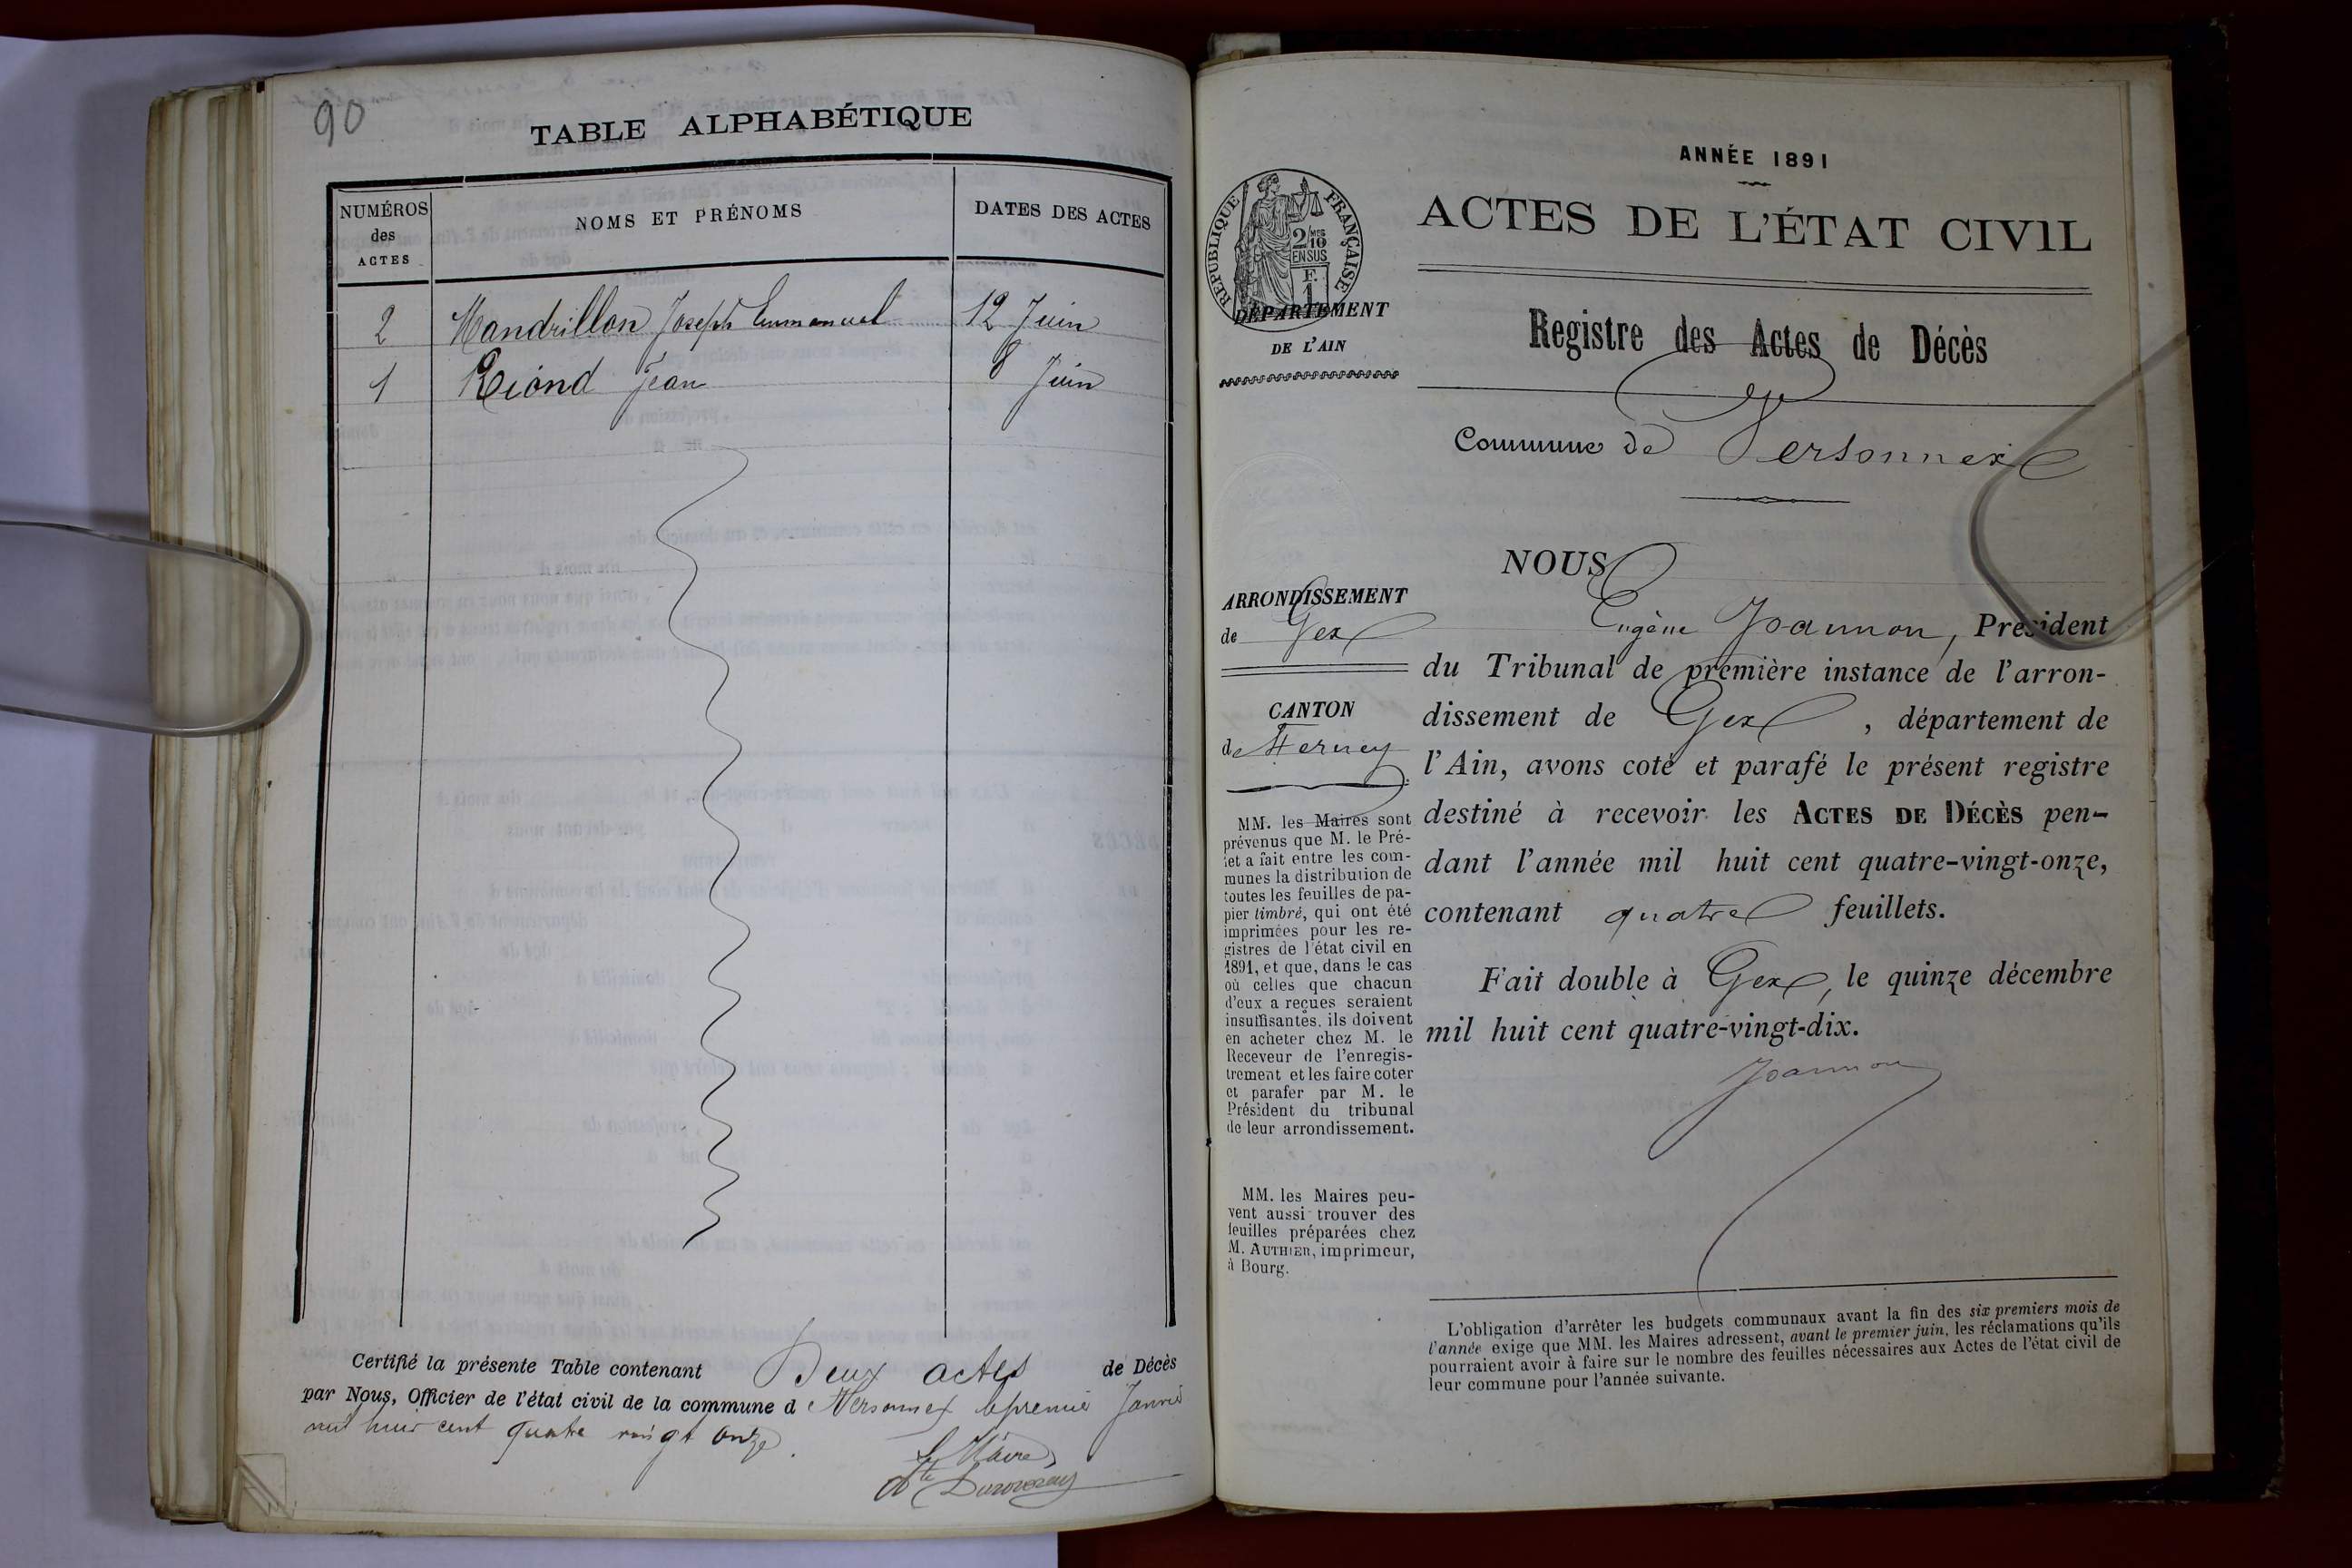 90
TABLE ALPHABÉTIQUE
NUMÉROS
des
ACTES
NOMS ET PRÉNOMS
DATES DES ACTES
2 Mandrillon Joseph Emmanuel 12 Juin
1 Riond Jean 8 Juin
Certifié la présente Table contenant Deux actes de Décès
par Nous, Officier de l'état civil de la commune de Versonnex le premier Janvier
mil huit cent quatre vingt onze.
Le Maire
ANNÉE 1891
ACTES DE L'ÉTAT CIVIL
RÉPUBLIQUE FRANÇAISE
2/10 EN SUS
F. 1
DÉPARTEMENT
DE L'AIN
Registre des Actes de Décès
Commune de Versonnex
ARRONDISSEMENT
de Gex
CANTON
de Ferney
MM. les Maires sont
prévenus que M. le Pré-
fet a fait entre les com-
munes la distribution de
toutes les feuilles de pa-
pier timbré, qui ont été
imprimées pour les re-
gistres de l'état civil en
1891, et que, dans le cas
où celles que chacun
d'eux a reçues seraient
insuffisantes, ils doivent
en acheter chez M. le
Receveur de l'enregis-
trement et les faire coter
et parafer par M. le
Président du tribunal
de leur arrondissement.
MM. les Maires peu-
vent aussi trouver des
feuilles préparées chez
M. AUTHIER, imprimeur,
à Bourg.
NOUS
Eugène Joannon, Président
du Tribunal de première instance de l'arron-
dissement de Gex, département de
l'Ain, avons coté et parafé le présent registre
destiné à recevoir les ACTES DE DÉCÈS pen-
dant l'année mil huit cent quatre-vingt-onze,
contenant quatre feuillets.
Fait double à Gex, le quinze décembre
mil huit cent quatre-vingt-dix.
Joannon
L'obligation d'arrêter les budgets communaux avant la fin des six premiers mois de
l'année exige que MM. les Maires adressent, avant le premier juin, les réclamations qu'ils
pourraient avoir à faire sur le nombre des feuilles nécessaires aux Actes de l'état civil de
leur commune pour l'année suivante.